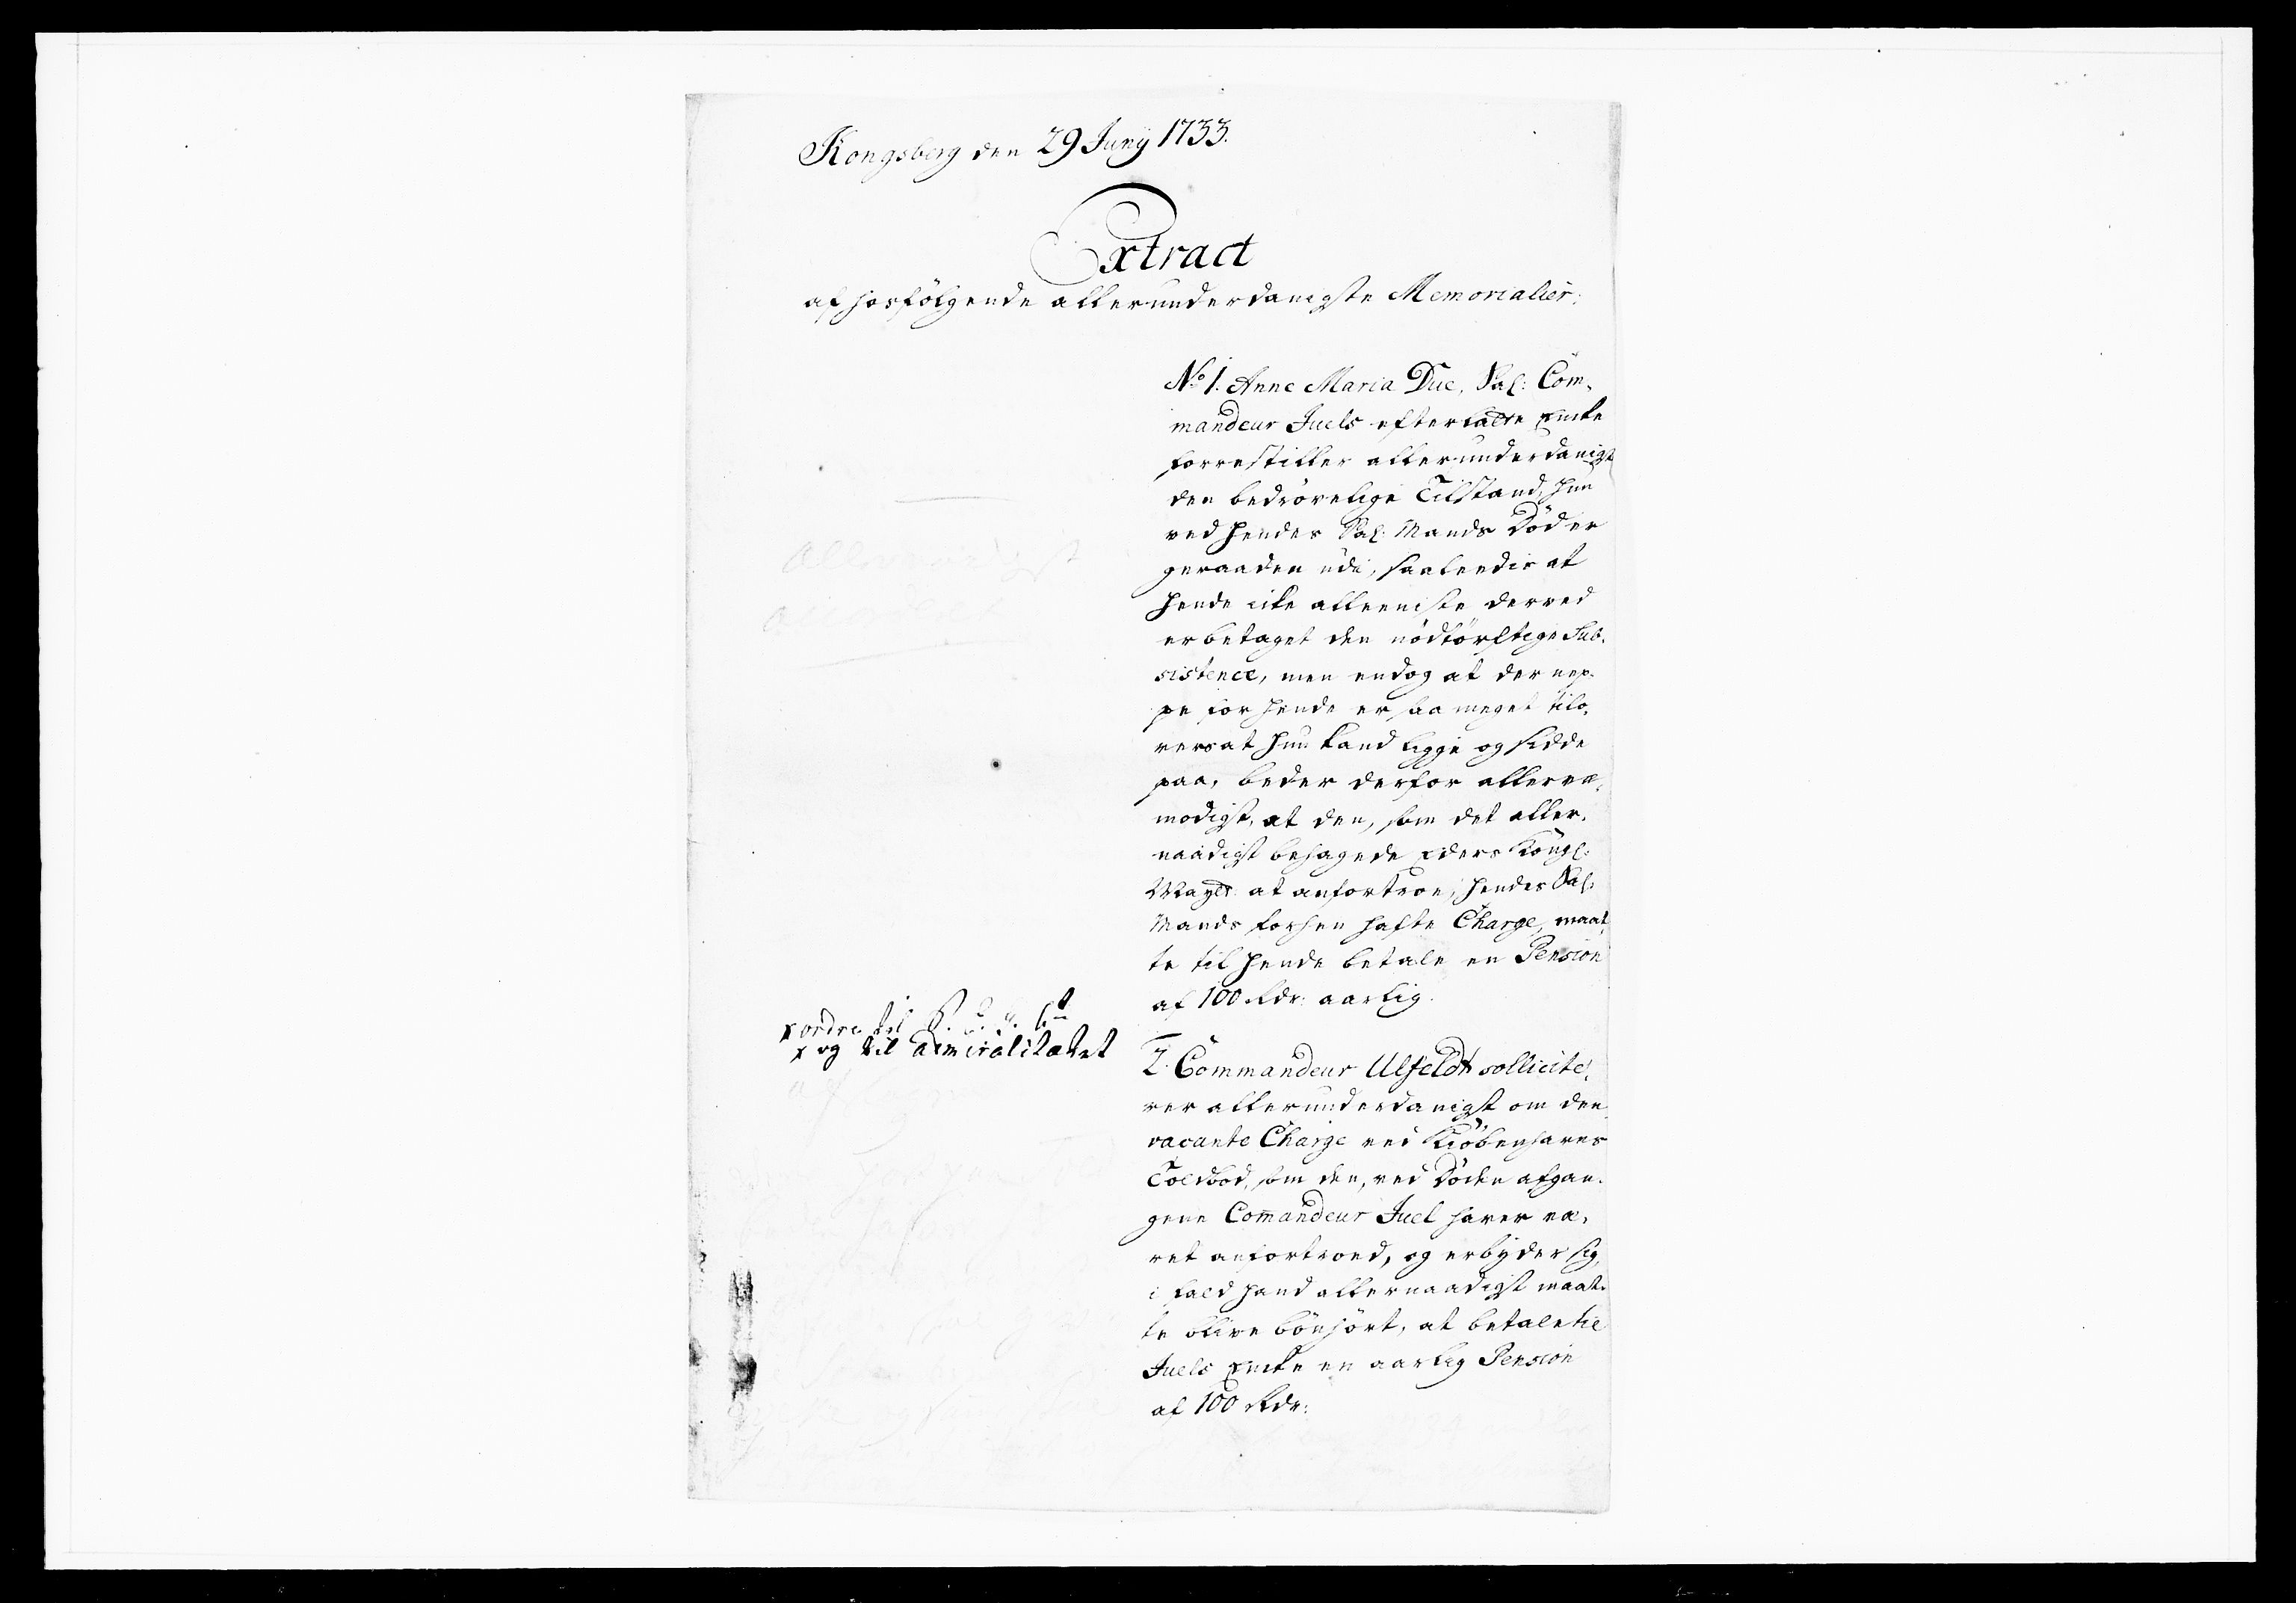 Kongsberg den 29 Junÿ 1733.
Extract
af hosfölgende allerunderdanigste Memorialier:
No 1. Anne Maria Due, Sal: Com-
mandeur Juels efterladte Encke
forrestiller allerunderdanigst
den bedrövelige Tilstand, hun
ved hendes Sal: Mands Död er
geraaden udi, saaleedis at
hende icke alleeniste derved
er betaget den nödtörftige Sub-
sistence, men endog at der nep-
pe for hende er saa meget tilo-
vers at hun kand ligge og sidde
paa, beder derfor allerve-
modigst, at den, som det aller-
naadigst behagede Eders Kongl:
Mayts: at anfortroe, hendes Sal:
Mands forhen hafte Charge, maat-
te til hende betale en Pension
af 100 Rdr: aarlig.
ordre til
og til admiralitetet
2. Commandeur Ulfeldt sollicite-
rer allerunderdanigst om den
vacante Charge ved Kiöbenhavns
Toldbod, som den, ved Döden afgan-
gene Commandeur Juel haver væ-
ret anfortroed, og erbyder sig,
i fald hand allernaadigst maat-
te blive bönhört, at betale til
Juels Encke en aarlig Pension
af 100 Rdr: